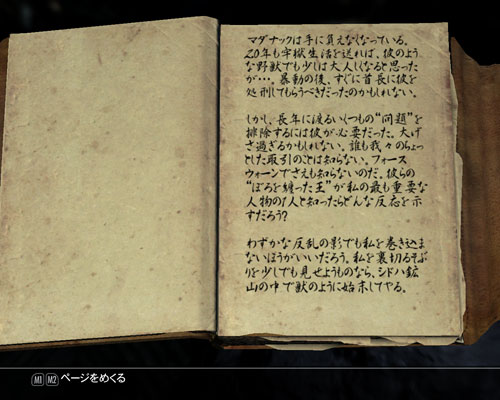 マダナックは手に負えなくなっている。
20年も牢獄生活を送れば、彼のよう
な野獣でも少しは大人しくなると思った
が…。暴動の後、すぐに首長に彼を
処刑してもらうべきだったのかもしれない。
しかし、長年に渡るいくつもの“問題”を
排除するには彼が必要だった。大げ
さ過ぎるかもしれない。誰も我々のちょっ
とした取引のことは知らない。フォース
ウォーンでさえも知らないのだ。彼らの
“ぼろを纏った王”が私の最も重要な
人物の1人と知ったらどんな反応を示
すだろう?
わずかな反乱の影でも私を巻き込ま
ないほうがいいだろう。私を裏切るそぶ
りを少しでも見せようものなら、シドハ鉱
山の中で獣のように始末してやる。
M1 M2 ページをめくる